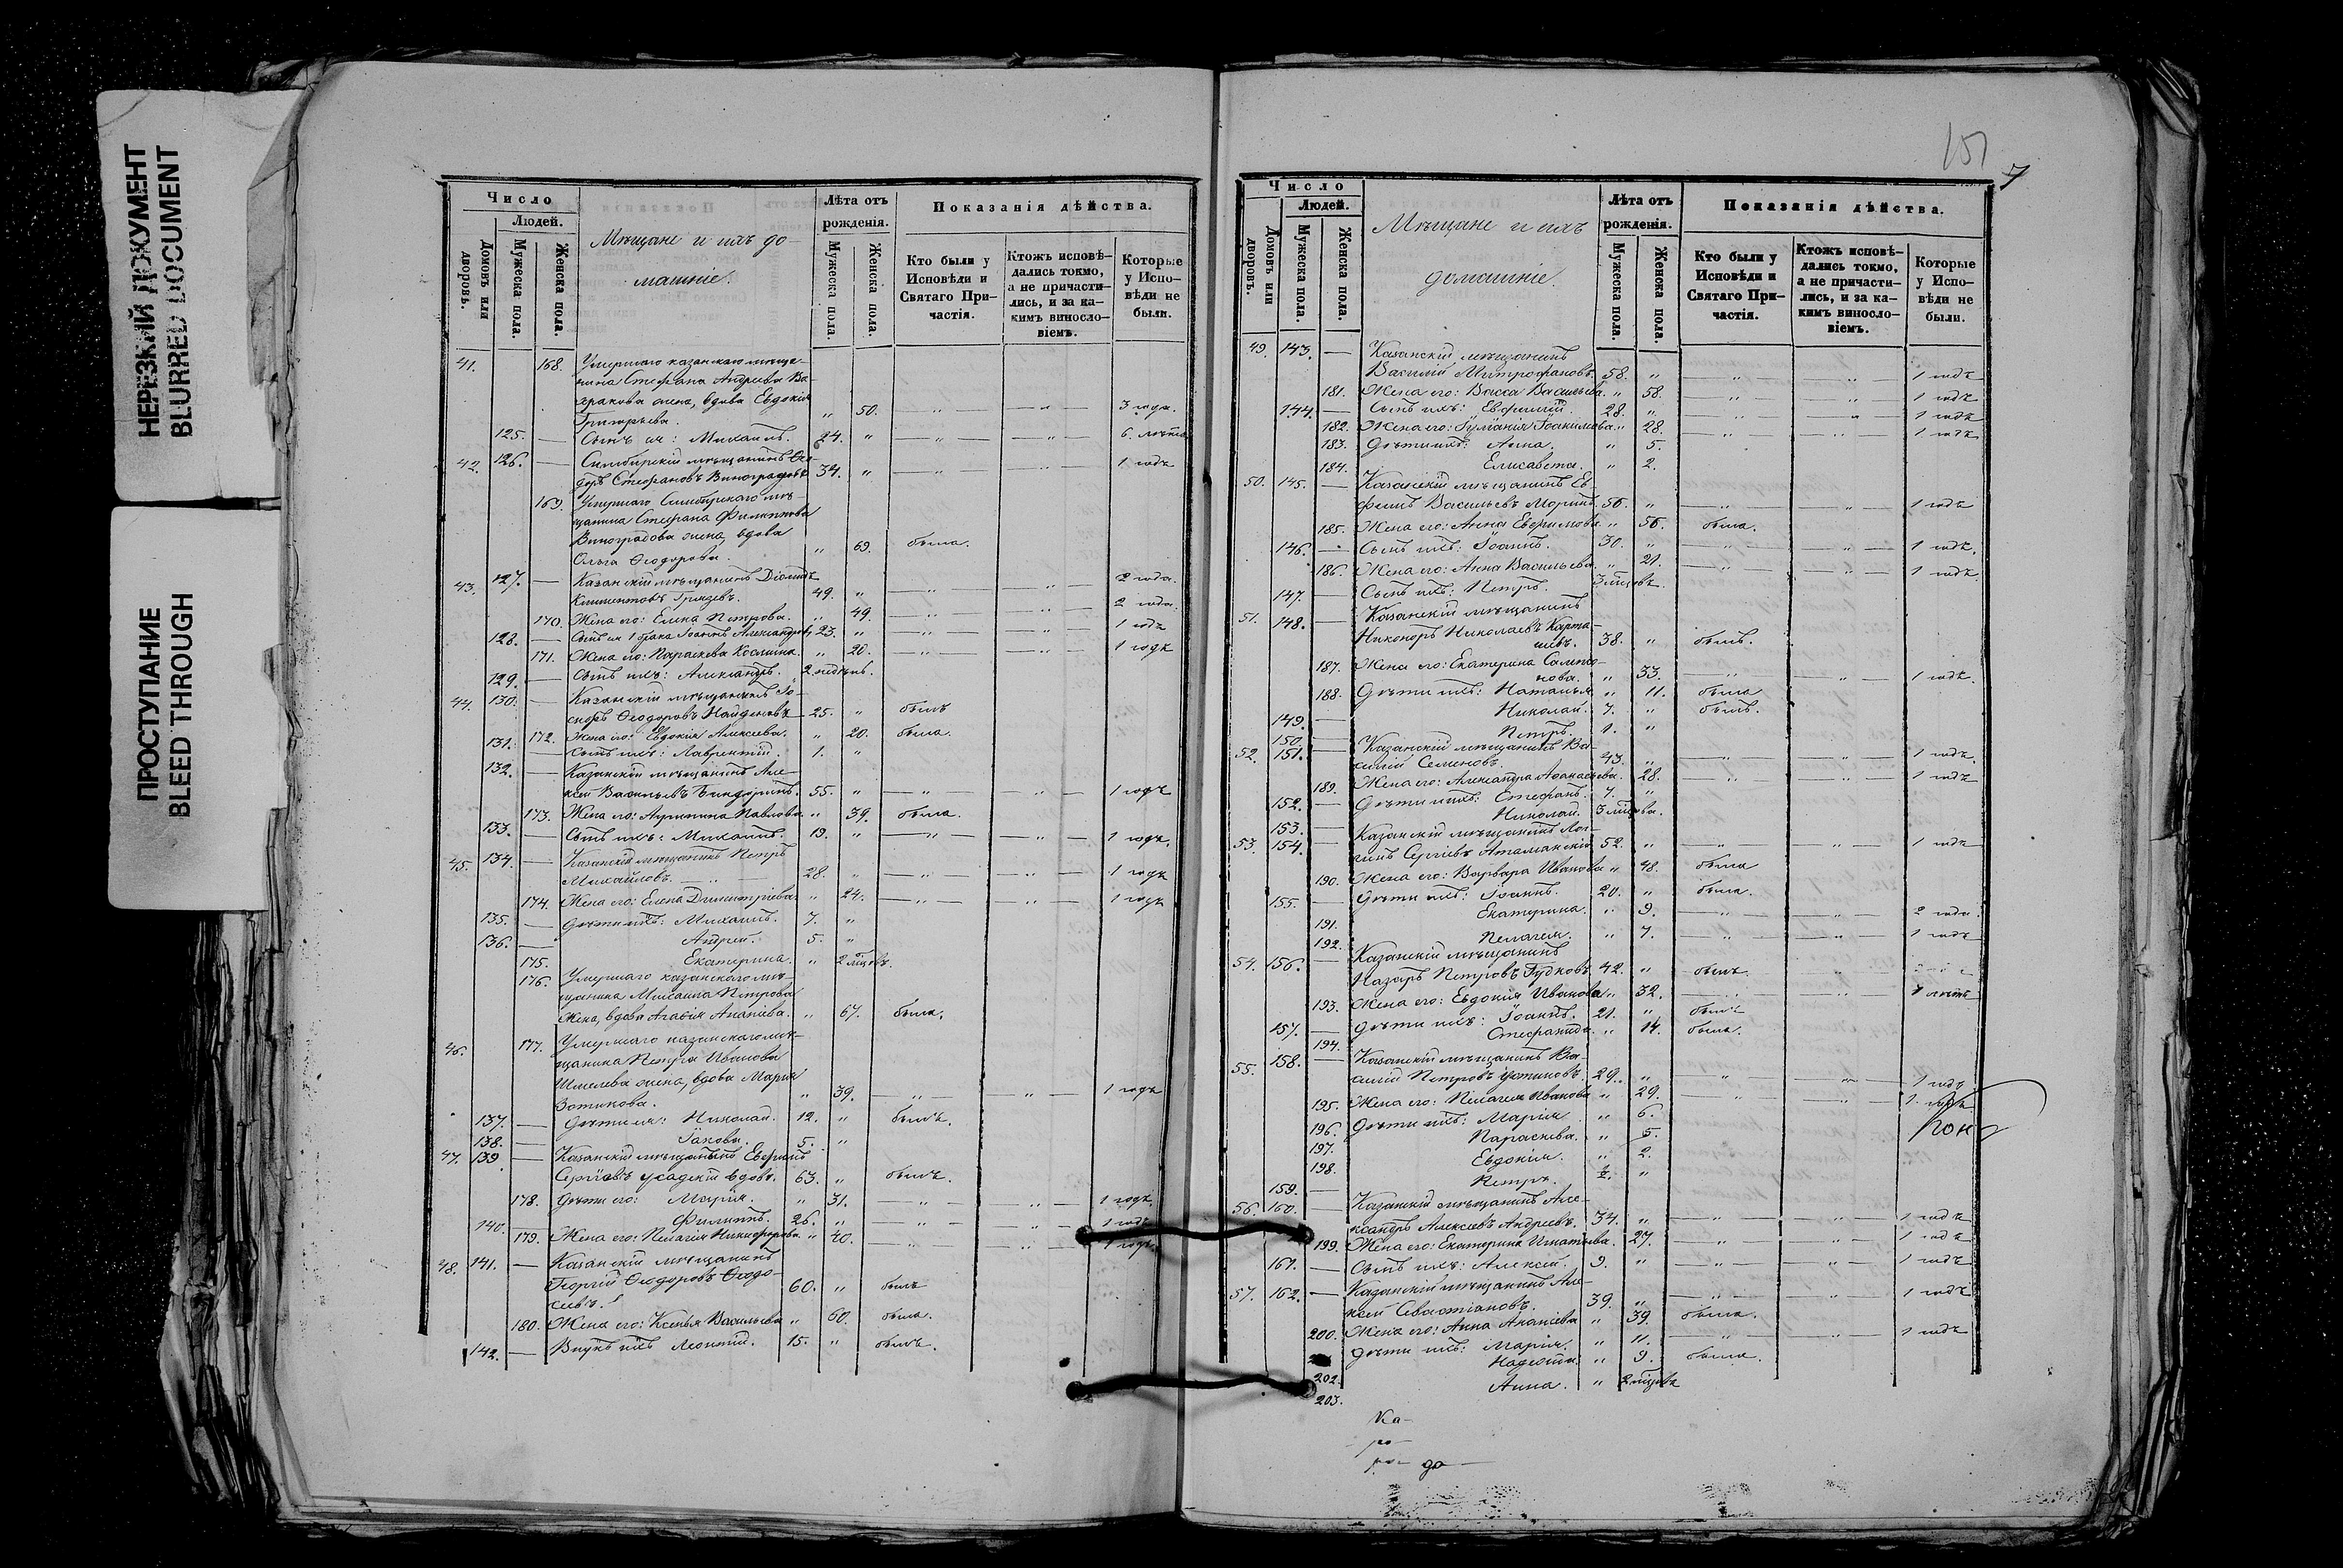 НЕРЕЗКИЙ ДОКУМЕНТ
BLURRED DOCUMENT
ПРОСТУПАНИЕ
BLEED THROUGH
Число
Людей.
Домовъ или дворовъ.
Мужеска пола.
Женска пола.
Мѣщане и ихъ до-
машніе.
Лѣта отъ рожденія.
Мужеска пола.
Женска пола.
Показанія дѣйства.
Кто были у Исповѣди и Святаго При-частія.
Ктожъ исповѣ-дались токмо, а не причасти-лись, и за ка-кимъ виносло-віемъ.
Которые у Испо-вѣди не были.
41. 168. Умершаго казанскаго мѣща-
нина Стефана Андреева
жена, вдова Евдокія
Григорьева. " 50. — " — — " — 3 года.
125. — Сынъ ея: Михаилъ. 24. " — " — — " — 6. лѣтъ
42. 126. — Симбирскій мѣщанинъ Ѳео-
доръ Стефановъ Виноградовъ 34. " — " — " — 1 годъ
169. Умершаго Симбирскаго мѣ-
щанина Стефана Филиппова
Виноградова жена, вдова
Ольга Ѳеодорова " 69. была.
43. 127. — Казанскій мѣщанинъ Діомидъ
Климентовъ Грязевъ. 49. " — " — " — 2 года.
170. Жена его: Елена Петрова. " 49. — " — " — 2 года.
128. — Сынъ ея 1 брака Іоаннъ Александровъ 23. " — " — " — 1 годъ
171. Жена его: Параскева Косьмина. " 20. — " — " — 1 годъ
129. — Сынъ ихъ: Александръ. 2 недѣль.
44. 130. — Казанскій мѣщанинъ Іо-
сифъ Ѳеодоровъ Найденовъ 25. " былъ
172. Жена его: Евдокія Алексеева. " 20. была.
131. — Сынъ ихъ: Лаврентій. 1. "
132. — Казанскій мѣщанинъ Але-
ксѣй Васильевъ 55. " — " — " — 1 годъ
173. Жена его: Агриппина Павлова. " 39. была.
133. — Сынъ ихъ: Михаилъ. 19. " — " — " — 1 годъ.
45. 134. — Казанскій мѣщанинъ Петръ
Михайловъ. — " — 28. " — " — " — 1 годъ
174. Жена его: Елена Димитріева. " 24. — " — " — 1 годъ
135. — Дѣти ихъ: Михаилъ. 7. "
136. — Андрей. 5. "
175. Екатерина. " 2 мѣсяцовъ.
176. Умершаго казанскаго мѣ-
щанина Михаила Петрова
жена, вдова Агаѳія Ананіева. " 67. была.
46. 177. Умершаго казанскаго мѣ-
щанина Петра Иванова
Шмелева жена, вдова Марія
Зотикова. " 39. — " — " — 1 годъ
137. — Дѣти ея: Николай. 12. " былъ.
138. — Іаковъ. 5. "
47. 139 — Казанскій мѣщанинъ Евфимъ
Сергіевъ Усадскій вдовъ. 63. " былъ.
178. Дѣти его: Марія. " 31. — " — " — 1 годъ.
140. — Филиппъ. 26. " — " — " — 1 годъ
179. Жена его: Пелагія Никифорова. " 40. — " — " — 1 годъ.
48. 141. — Казанскій мѣщанинъ
Георгій Ѳеодоровъ Ѳеодо-
сіевъ. 60. " былъ
180. Жена его: Ксенья Васильева " 60. была.
142. — Внукъ ихъ Леонтій. 15. " былъ.
151
7
Число
Людей.
Домовъ или дворовъ.
Мужеска пола.
Женска пола.
Мѣщане и ихъ
домашніе.
Лѣта отъ рожденія.
Мужеска пола.
Женска пола.
Показанія дѣйства.
Кто были у Исповѣди и Святаго При-частія.
Ктожъ исповѣ-дались токмо, а не причасти-лись, и за ка-кимъ виносло-віемъ.
Которые у Испо-вѣди не были.
49. 143. — Казанскій мѣщанинъ
Василій Митрофановъ. 58. " — " — " — 1 годъ
181. Жена его: Васса Васильева. " 58. — " — " — 1 годъ
144. — Сынъ ихъ: Евфимій. 28. " — " — " — 1 годъ
182. Жена его: Іуліанія Іоакимова. " 28. — " — " — 1 годъ
183. Дѣти ихъ: Анна. " 5.
184. Елисавета. " 2.
50. 145. — Казанскій мѣщанинъ Ев-
фимъ Васильевъ Моринъ. 56. " — " — " — 1 годъ
185. Жена его: Анна Евфимова. " 56. была.
146. — Сынъ ихъ: Іоаннъ. 30. " — " — " — 1 годъ.
186. Жена его: Анна Васильева. " 21. — " — " — 1 годъ.
147. — Сынъ ихъ: Петръ. 3 мѣсяцовъ
51. 148. — Казанскій мѣщанинъ
Никоноръ Николаевъ Карта-
шевъ. 38. " былъ.
187. Жена его: Екатерина Сампсо-
нова. " 33. — " — " — 1 годъ.
188. Дѣти ихъ: Наталья " 11. была
149. — Николай. 7. " былъ.
150. — Петръ. 1. "
52. 151. — Казанскій мѣщанинъ Ва-
силій Семеновъ. 43. " — " — " — 1 годъ.
189. Жена его: Александра Аѳанасьева. " 28. — " — " — 1 годъ
152. — Дѣти ихъ: Стефанъ. 7. "
153. — Николай. 3 мѣсяца.
53. 154. — Казанскій мѣщанинъ Лон-
гинъ Сергіевъ Атаманскій 52. " — " — " — 1 годъ
190. Жена его: Варвара Иванова " 48. была
155. — Дѣти ихъ: Іоаннъ. 20. " была.
191. Екатерина. " 9. — " — " — 2 года.
192. Пелагея. " 7. — " — " — 1 годъ
54. 156. — Казанскій мѣщанинъ
Назаръ Петровъ Гудковъ. 42. " былъ.
193. Жена его: Евдокія Иванова " 32. — " — " — лѣтъ
157. — Дѣти ихъ: Іоаннъ. 21. " былъ
194. Стефанида. " 14. была.
55. 158. — Казанскій мѣщанинъ Ва-
силій Петровъ Устиновъ. 29. " — " — " — 1 годъ
195. Жена его: Пелагея Иванова " 29. — " — " — 1 годъ
196. Дѣти ихъ: Марія. " 6.
197. Параскева. " 5.
198. Евдокія. " 2.
159. — Петръ. ½. "
56. 160. — Казанскій мѣщанинъ Але-
ксандръ Алексѣевъ Андреевъ. 34. " — " — " — 1 годъ
199. Жена его: Екатерина Игнатьева. " 27. — " — " — 1 годъ
161. — Сынъ ихъ: Алексѣй. 9. " — " — " — 1 годъ
57. 162. — Казанскій мѣщанинъ Але-
ксѣй Севастіановъ. 39. " — " — " — 1 годъ
200. Жена его: Анна Ананіева " 39. была.
Дѣти ихъ: Марія. " 11. — " — " — 1 годъ
202. Надежда. " 9. была.
203. Анна. " 2 мѣсяца
Ка-
ро-
до